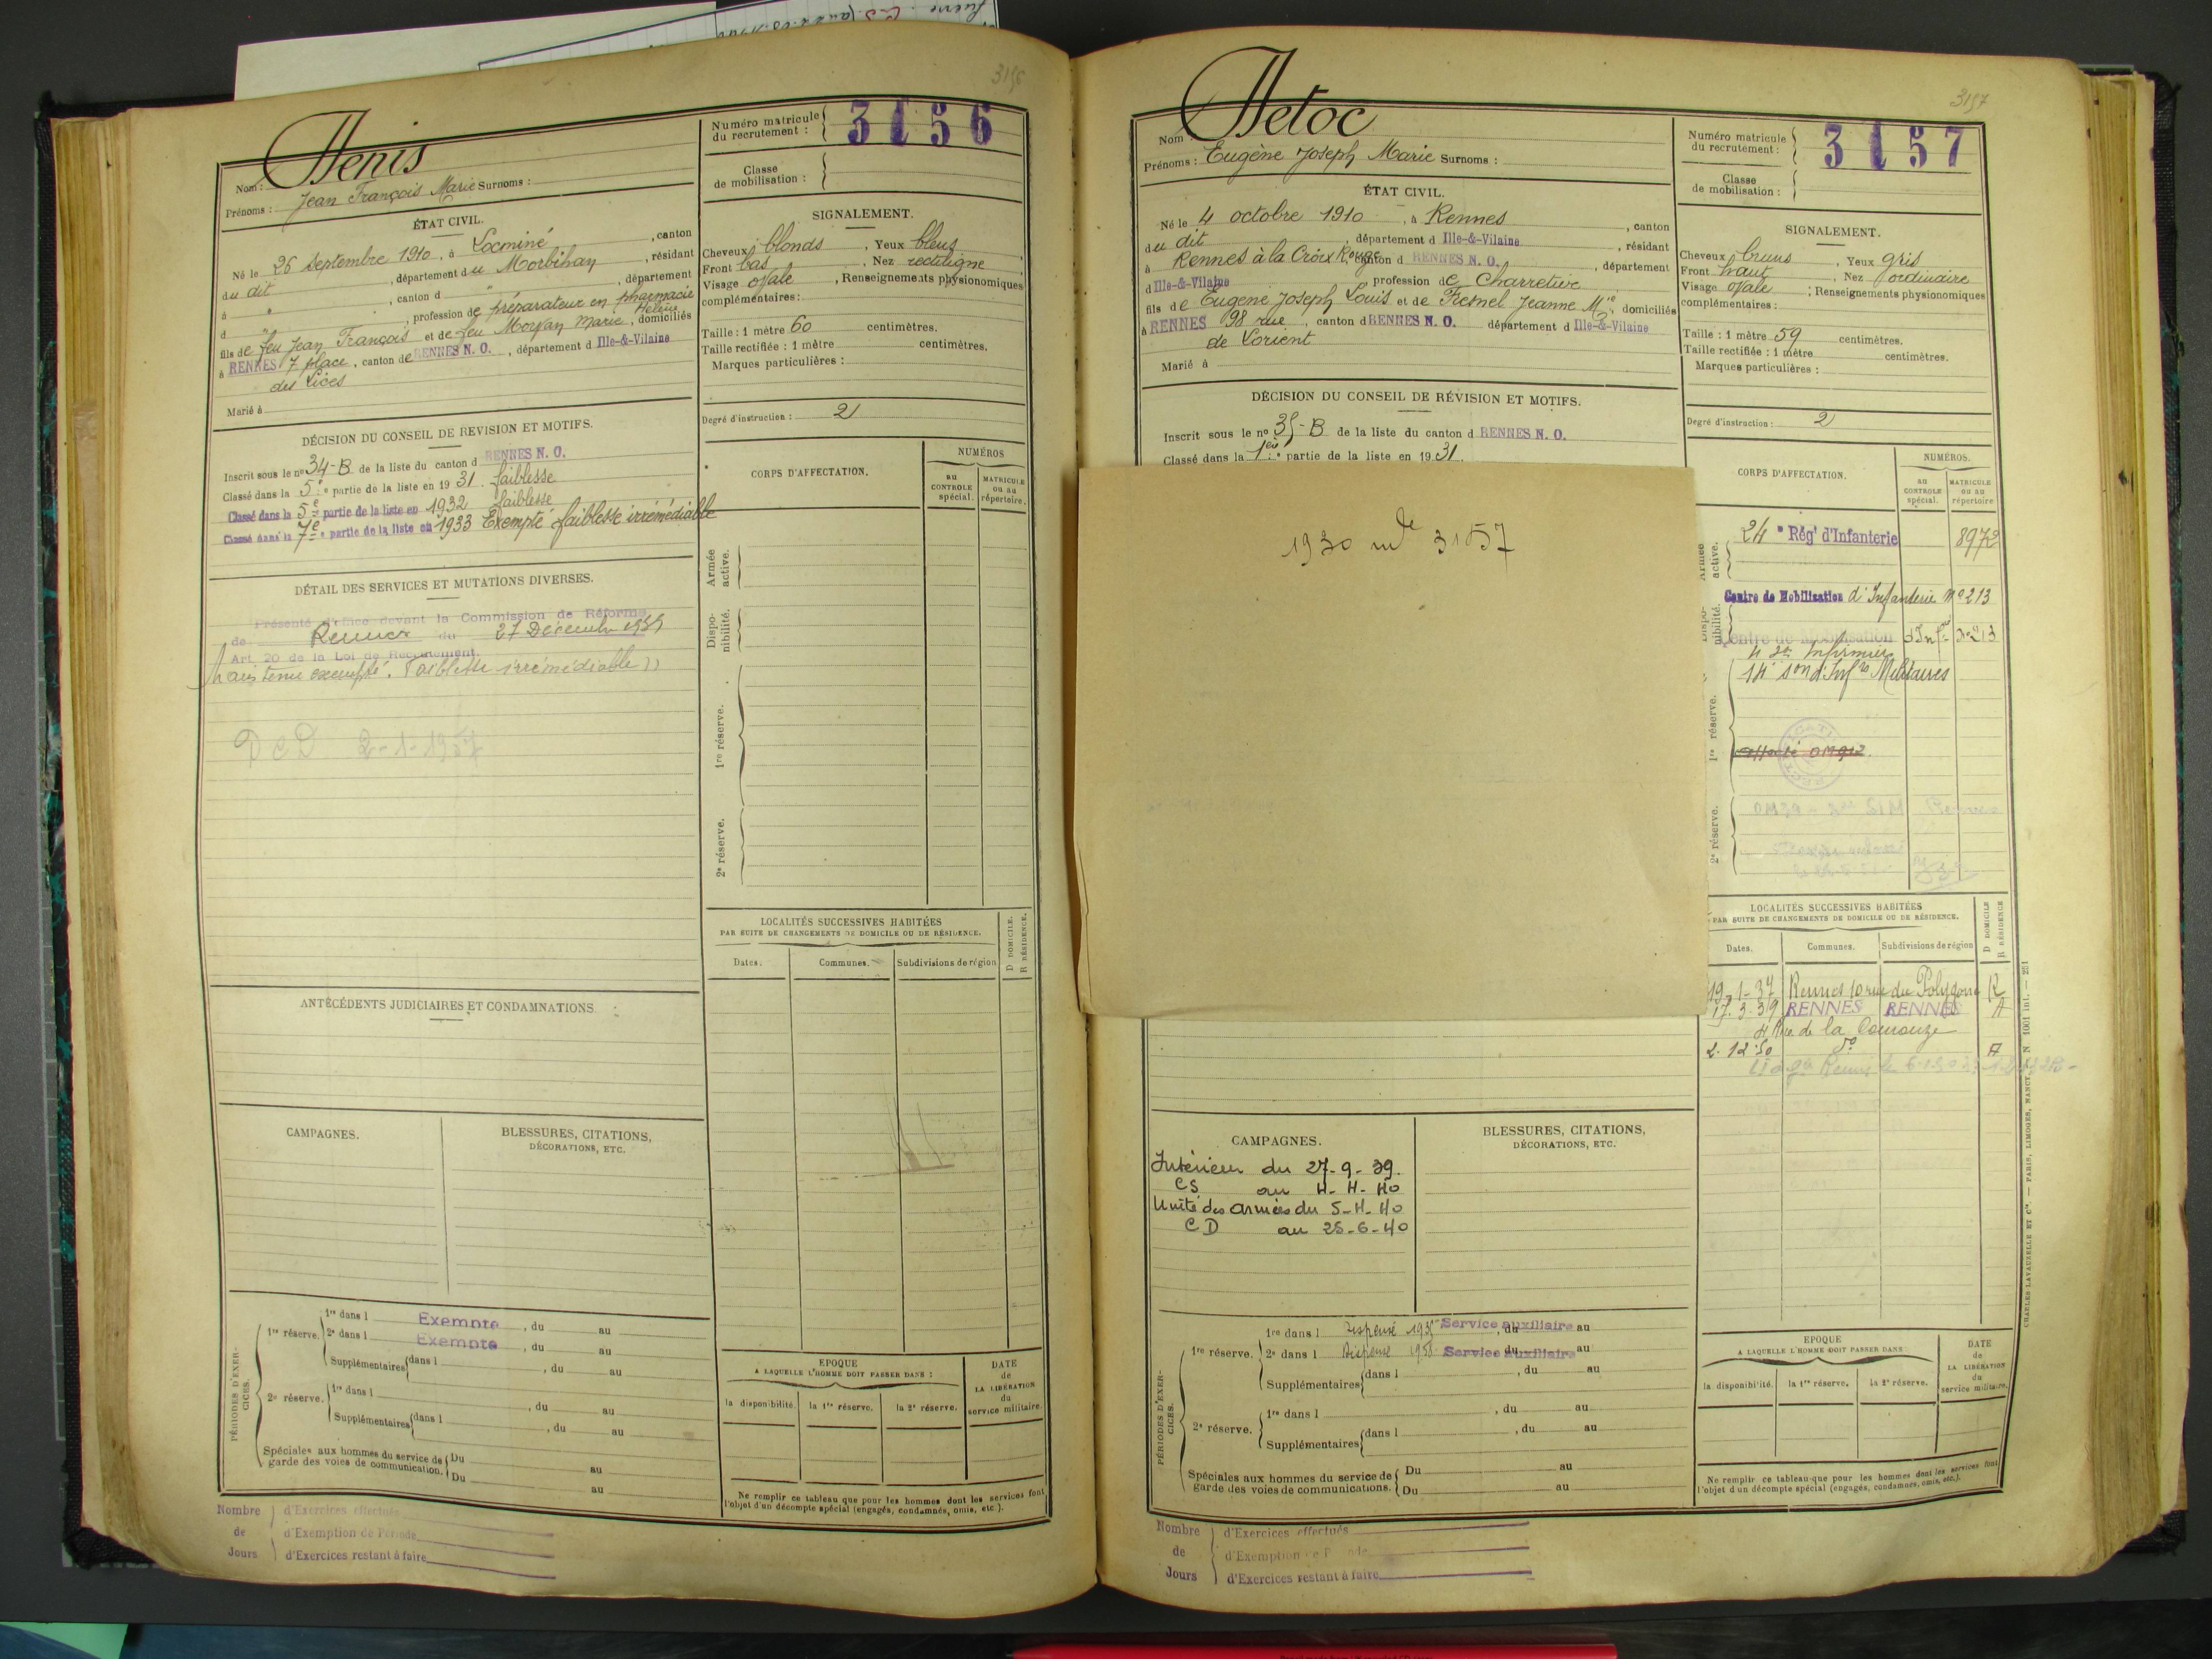 3156
Henis
Nom :
Prénoms : Jean François Marie Surnoms :
Numéro matricule du recrutement : 3156
Classe de mobilisation :
ÉTAT CIVIL.
Né le 26 Septembre 1910, à Locminé, canton
du dit, département du Morbihan, résidant
à ", canton d ", département
d ", profession de préparateur en pharmacie
fils de feu Jean François et de feu Morvan Marie Hélène, domiciliés
à RENNES 7 place, canton de RENNES N. O., département d Ille-&-Vilaine
des Lices
Marié à
SIGNALEMENT.
Cheveux blonds, Yeux bleus
Front bas, Nez rectiligne
Visage ovale, Renseignements physionomiques
complémentaires :
Taille : 1 mètre 60 centimètres.
Taille rectifiée : 1 mètre centimètres.
Marques particulières :
Degré d'instruction : 2
DÉCISION DU CONSEIL DE REVISION ET MOTIFS.
Inscrit sous le no 34-B de la liste du canton d RENNES N. O.
Classé dans la 5e partie de la liste en 1931. faiblesse
Classé dans la 5e partie de la liste en 1932 faiblesse
Classé dans la 7e partie de la liste en 1933 Exempté faiblesse irrémédiable
DÉTAIL DES SERVICES ET MUTATIONS DIVERSES.
Présenté d'office devant la Commission de Réforme
de Rennes du 27 Décembre 1939
Art. 20 de la Loi de Recrutement.
Maintenu exempté. Faiblesse irrémédiable
DCD 2-1-1957
CORPS D'AFFECTATION.
NUMÉROS
au CONTROLE spécial.
MATRICULE ou au répertoire.
Armée active.
Disponibilité.
1re réserve.
2e réserve.
LOCALITÉS SUCCESSIVES HABITÉES
PAR SUITE DE CHANGEMENTS DE DOMICILE OU DE RÉSIDENCE.
Dates.
Communes.
Subdivisions de région
D DOMICILE.
R RÉSIDENCE.
ANTÉCÉDENTS JUDICIAIRES ET CONDAMNATIONS
CAMPAGNES.
BLESSURES, CITATIONS,
DÉCORATIONS, ETC.
PÉRIODES D'EXERCICES.
1re réserve. 1re dans l Exempté, du au
2e dans l Exempté, du au
Supplémentaires dans l , du au
2e réserve 1re dans l , du au
Supplémentaires dans l , du au
Spéciales aux hommes du service de garde des voies de communication. Du au
Du au
EPOQUE
A LAQUELLE L'HOMME DOIT PASSER DANS :
la disponibilité.
la 1re réserve.
la 2e réserve.
DATE de LA LIBÉRATION du service militaire.
Ne remplir ce tableau que pour les hommes dont les services font
l'objet d'un décompte spécial (engagés, condamnés, omis, etc.).
Nombre de Jours
d'Exercices effectués
d'Exemption de Période
d'Exercices restant à faire
3157
Hetoc
Nom
Prénoms : Eugène Joseph Marie Surnoms :
Numéro matricule du recrutement : 3157
Classe de mobilisation :
ÉTAT CIVIL.
Né le 4 octobre 1910, à Rennes, canton
du dit, département d Ille-&-Vilaine, résidant
à Rennes à la Croix Rouge, canton d RENNES N. O., département
d Ille-&-Vilaine, profession de Charretier
fils de Eugène Joseph Louis et de Fresnel Jeanne Mie, domiciliés
à RENNES 98 rue, canton d RENNES N. O. département d Ille-&-Vilaine
de Lorient
Marié à
SIGNALEMENT.
Cheveux bruns, Yeux gris
Front haut, Nez ordinaire
Visage ovale, Renseignements physionomiques
complémentaires :
Taille : 1 mètre 59 centimètres.
Taille rectifiée : 1 mètre centimètres.
Marques particulières :
Degré d'instruction : 2
DÉCISION DU CONSEIL DE RÉVISION ET MOTIFS.
Inscrit sous le no 35-B de la liste du canton d RENNES N. O.
Classé dans la 1ere partie de la liste en 1931.
1930 mle 3157
CORPS D'AFFECTATION.
NUMÉROS.
au CONTROLE spécial.
MATRICULE ou au répertoire
Armée active.
24e Régt d'Infanterie 8972
Disponibilité.
Centre de Mobilisation d'Infanterie No 213
Centre de Mobilisation d'Infrie No 213
1re réserve.
14e son d'Infrs Militaires
2e réserve.
LOCALITÉS SUCCESSIVES HABITÉES
PAR SUITE DE CHANGEMENTS DE DOMICILE OU DE RÉSIDENCE.
Dates.
Communes.
Subdivisions de région
D DOMICILE
R RÉSIDENCE
19-1-37 Rennes 10 rue du Polygone R
17.3.39 RENNES RENNES A
4 Rue de la Courouze
2.12.50 do A
CAMPAGNES.
Intérieur du 27-9-39.
CS au 4-4-40
Unité des armées du 5-4-40
CD au 25-6-40
BLESSURES, CITATIONS,
DÉCORATIONS, ETC.
PÉRIODES D'EXERCICES.
1re réserve. 1re dans l Dispensé 1935 Service auxiliaire, du au
2e dans l Dispensé 1938 Service auxiliaire du au
Supplémentaires dans l , du au
2e réserve. 1re dans l , du au
Supplémentaires dans l , du au
Spéciales aux hommes du service de garde des voies de communications. Du au
Du au
EPOQUE
A LAQUELLE L'HOMME DOIT PASSER DANS :
la disponibilité.
la 1re réserve.
la 2e réserve.
DATE de LA LIBÉRATION du service militaire.
Ne remplir ce tableau que pour les hommes dont les services font
l'objet d'un décompte spécial (engagés, condamnés, omis, etc.).
CHARLES LAVAUZELLE ET Cie. — PARIS, LIMOGES, NANCY. N 1001 int. — 251
Nombre de Jours
d'Exercices effectués
d'Exemption de
d'Exercices restant à faire